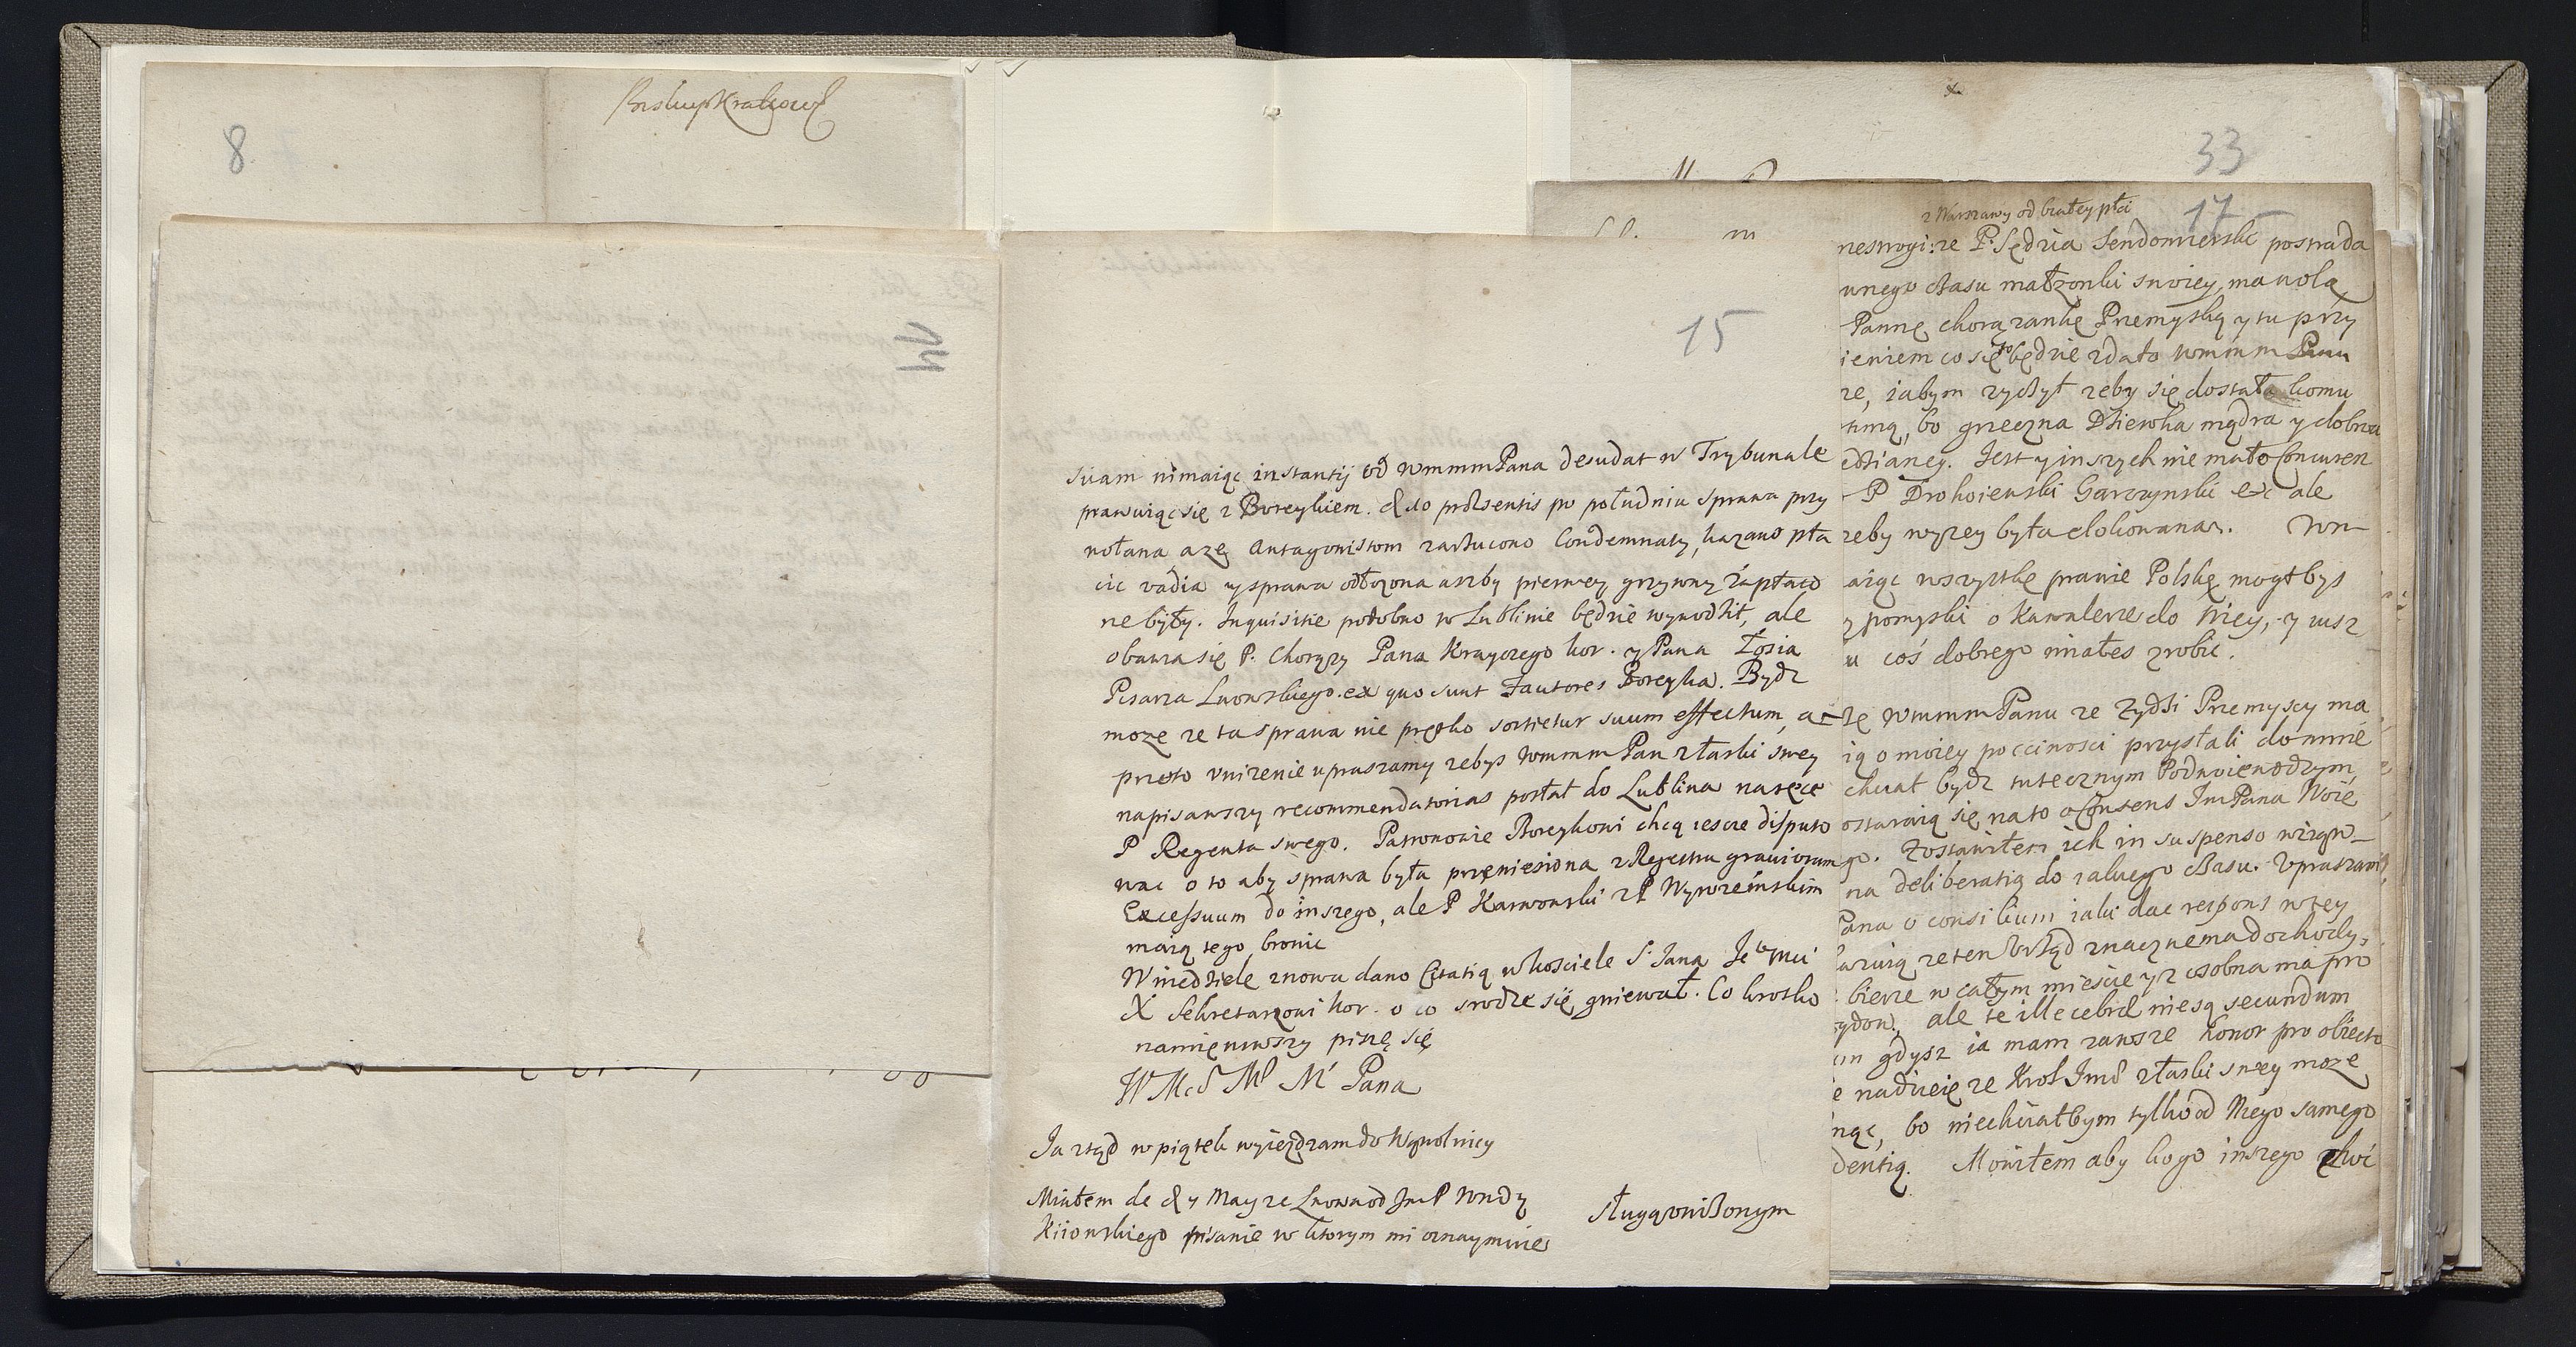 Biskup Krakows
8
14
15
suam nimaiąc instantij od WmmmPana desudat w Trybunale
prawuiąc się z Boreykiem. d 10 præsentis po południu sprawa przy
wołana, a zę Antagonistom zarzucono Condemnaty, kazano pła
cic vadia y sprawa odłozona aszby pierwey grzywny zapłaco
ne były. Inquisitie podobno w Lublinie będzie wywodzić, ale
obawia się P. Chorązy Pana Krayczego kor. y Pana Łosia
Pisarza Lwowskiego. ex quo sunt Fautores Boreyka. Bydz
moze ze ta sprawa nie prętko sortietur suum effectum, a
przeto unizenie upraszamy zebys WmmmPan z łaski swey
napisawszy recommendatorias posłał do Lublina na ręce
P Regenta swego. Patronowie Boreykowi chcą iescze disputo
wac o to aby sprawa była przeniesiona z Regestru grauiorum
Excessuum do inszego, ale P Karwowski z P Wyrozeinskim
maią tego bronic
W niedziele znowu dano Citatią w kosciele S. Jana Je Mci
X Sekretarzowi kor. o co srodze się gniewał. Co krotko
namięniwszy piszę się
WMcS MP M Pana
Ja ztąd w piątek wyiezdzam do Wąwolnicy
Miałem de d 7 May ze Lwowa od JmP Wndy
Kiiowskiego pisanie w ktorym mi oznaymuie
sługą unizonym
33
17
z Warszawy od białey płci
P. Sędzia Sendomierski postrada
unego czasu małzonki swoiey, ma wolą
Pannę chorązankę Przemyską y tu przy
ieniem co się to będzie zdało Wmmm Panu
ze, iabym zyczył zeby się dostała komu
bo grzeczna Dziewka mądra y dobrze
edzianey. Jest y inszych nie mało Concuren
P Drohoiewski Garczynski etc ale
zeby wyzey była elokowana. Wm
aiąc wszystkę prawie Polskę mogłbys
y pomyslic o Kawalerze do Niey, y tusz
u coś dobrego miałes zrobic.
zę WmmmPanu ze Zydzi Przemyscy ma
ią o moiey poccinosci przysłali do mnie
chciał bydz tutecznym Podwoiewodzym
ostaraią się na to o Consens JmPana Woie
go. Zostawiłem ich in suspenso
na deliberatią do zalnego czasu. Upraszam
Pana o consilium iaki dac respons w tey
ze ten Urząd znaczne ma dochody,
bierze w całym miescie y z osobna ma pro
zydow, ale te illecebræ nie są secundum
gdysz ia mam zawsze honor pro obiecto
e nadzieię ze Krol Jmć z łaski swey moze
nąc, bo niechciałbym tylko od Niego samego
dentią. Mowiłem aby kogo inszego